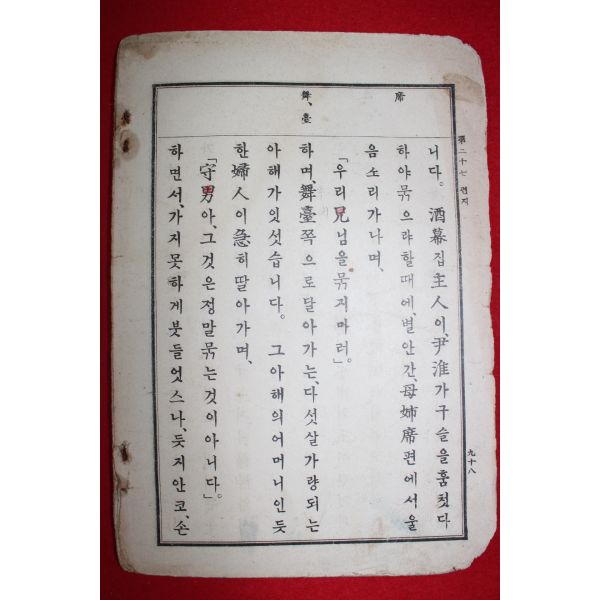 席
舞、臺
第二十七 편지
九十八
니다。 酒幕집主人이、尹淮가구슬을훔첫다
하야묶으랴할때에、별안간、母姉席편에서울
음소리가나며、
「우리兄님을묶지마러」。
하며、舞臺쪽으로달아가는、다섯살가량되는
아해가잇섯습니다。 그아해의어머니인듯
한婦人이急히딸아가며、
「守男아、그것은정말묶는것이아니다」。
하면서、가지못하게붓들엇스나、듯지안코、손